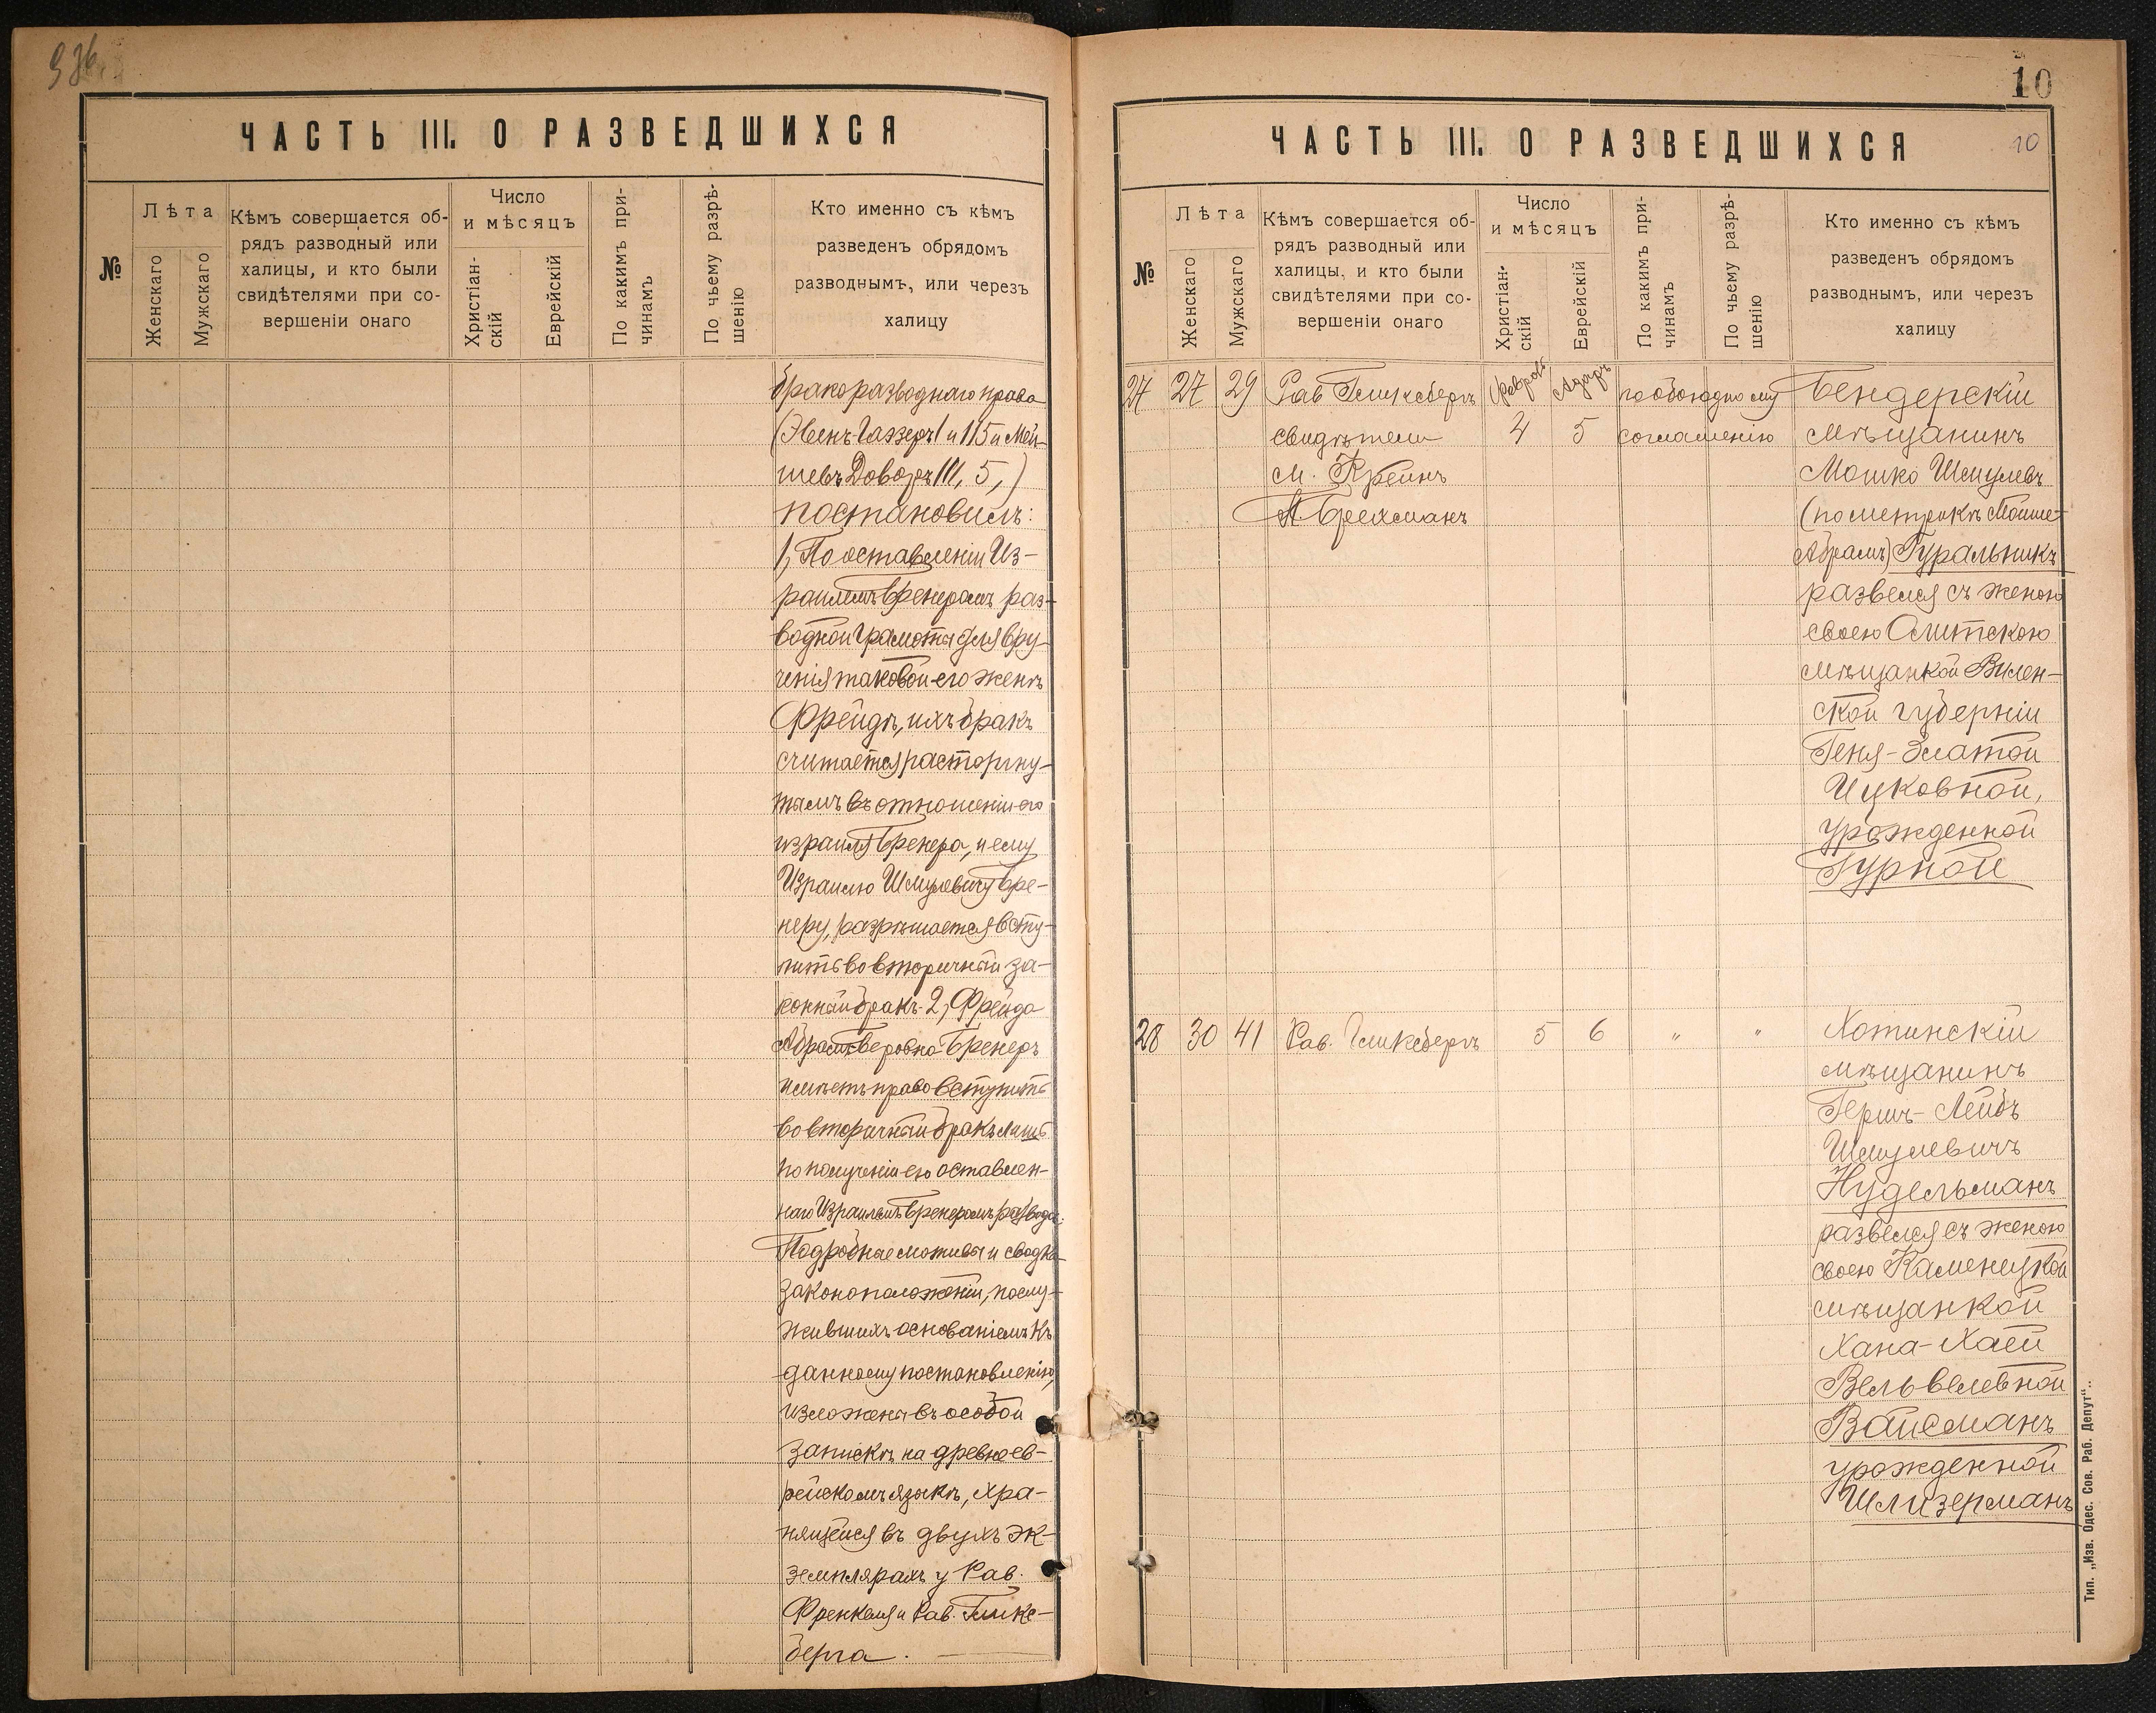 936
ЧАСТЬ III. О РАЗВЕДШИХСЯ
№
Лѣта
Женскаго
Мужскаго
Кѣмъ совершается об-
рядъ разводный или
халицы, и кто были
свидѣтелями при со-
вершеніи онаго
Число
и мѣсяцъ
Христіан-
скій
Еврейскій
По какимъ при-
чинамъ
По чьему разрѣ-
шенію
Кто именно съ кѣмъ
разведенъ обрядомъ
разводнымъ, или черезъ
халицу
бракоразводнаго права
(Эвенъ-Гаэзеръ 1 и 115 и Мей-
шевъ Доворъ III, 5,)
постановилъ:
1, По оставленіи Из-
раилемъ Бренеромъ раз-
водной грамоты для вру-
ченія таковой его женѣ
Фрейдѣ, ихъ бракъ
считается расторгну-
тымъ въ отношеніи его
израиля Бренера, и ему
Израилю Шмулевичу Бре-
неру, разрѣшается всту-
пить во вторичный за-
конный бракъ. 2, Фрейда
Абрамъ-Беровна Бренеръ
имѣетъ право вступить
во вторичный бракъ лишь
по полученіи ею оставлен-
наго Израилемъ Бренеромъ развода.
Подробные мотивы и сводка
законоположеній, послу-
жившихъ основаніемъ къ
данному постановленію,
изложены въ особой
запискѣ на древнеев-
рейскомъ языкѣ, хра-
нящейся въ двухъ эк-
земплярахъ у Рав.
Френкеля и Рав. Гликс-
берга.
10
ЧАСТЬ III. О РАЗВЕДШИХСЯ
10
№
Лѣта
Женскаго
Мужскаго
Кѣмъ совершается об-
рядъ разводный или
халицы, и кто были
свидѣтелями при со-
вершеніи онаго
Число
и мѣсяцъ
Христіан-
скій
Еврейскій
По какимъ при-
чинамъ
По чьему разрѣ-
шенію
Кто именно съ кѣмъ
разведенъ обрядомъ
разводнымъ, или черезъ
халицу
27 27 29 Рав Гликсбергъ Февраль Адаръ по обоюдному Бендерскій
свидѣтели 4 5 соглашенію мѣщанинъ
М. Крейнъ Мошко Шмулевъ
А. Брехманъ (по метрикѣ Мойше-
Абрамъ) Гуральникъ
развелся съ женою
своею Олитскою
мѣщанкой Вилен-
ской губерніи
Геня-Златой
Ицковной,
урожденной
Гурной
28 30 41 Рав. Гликсбергъ 5 6 " " Хотинскій
мѣщанинъ
Гершъ-Лейбъ
Шмулевичъ
Нудельманъ
развелся съ женою
своею Каменецкой
мѣщанкой
Хана-Хаей
Вельвелевной
Вайсманъ
урожденной
Шлизерманъ
Тип. „Изв. Одес. Сов. Раб. Депут“.